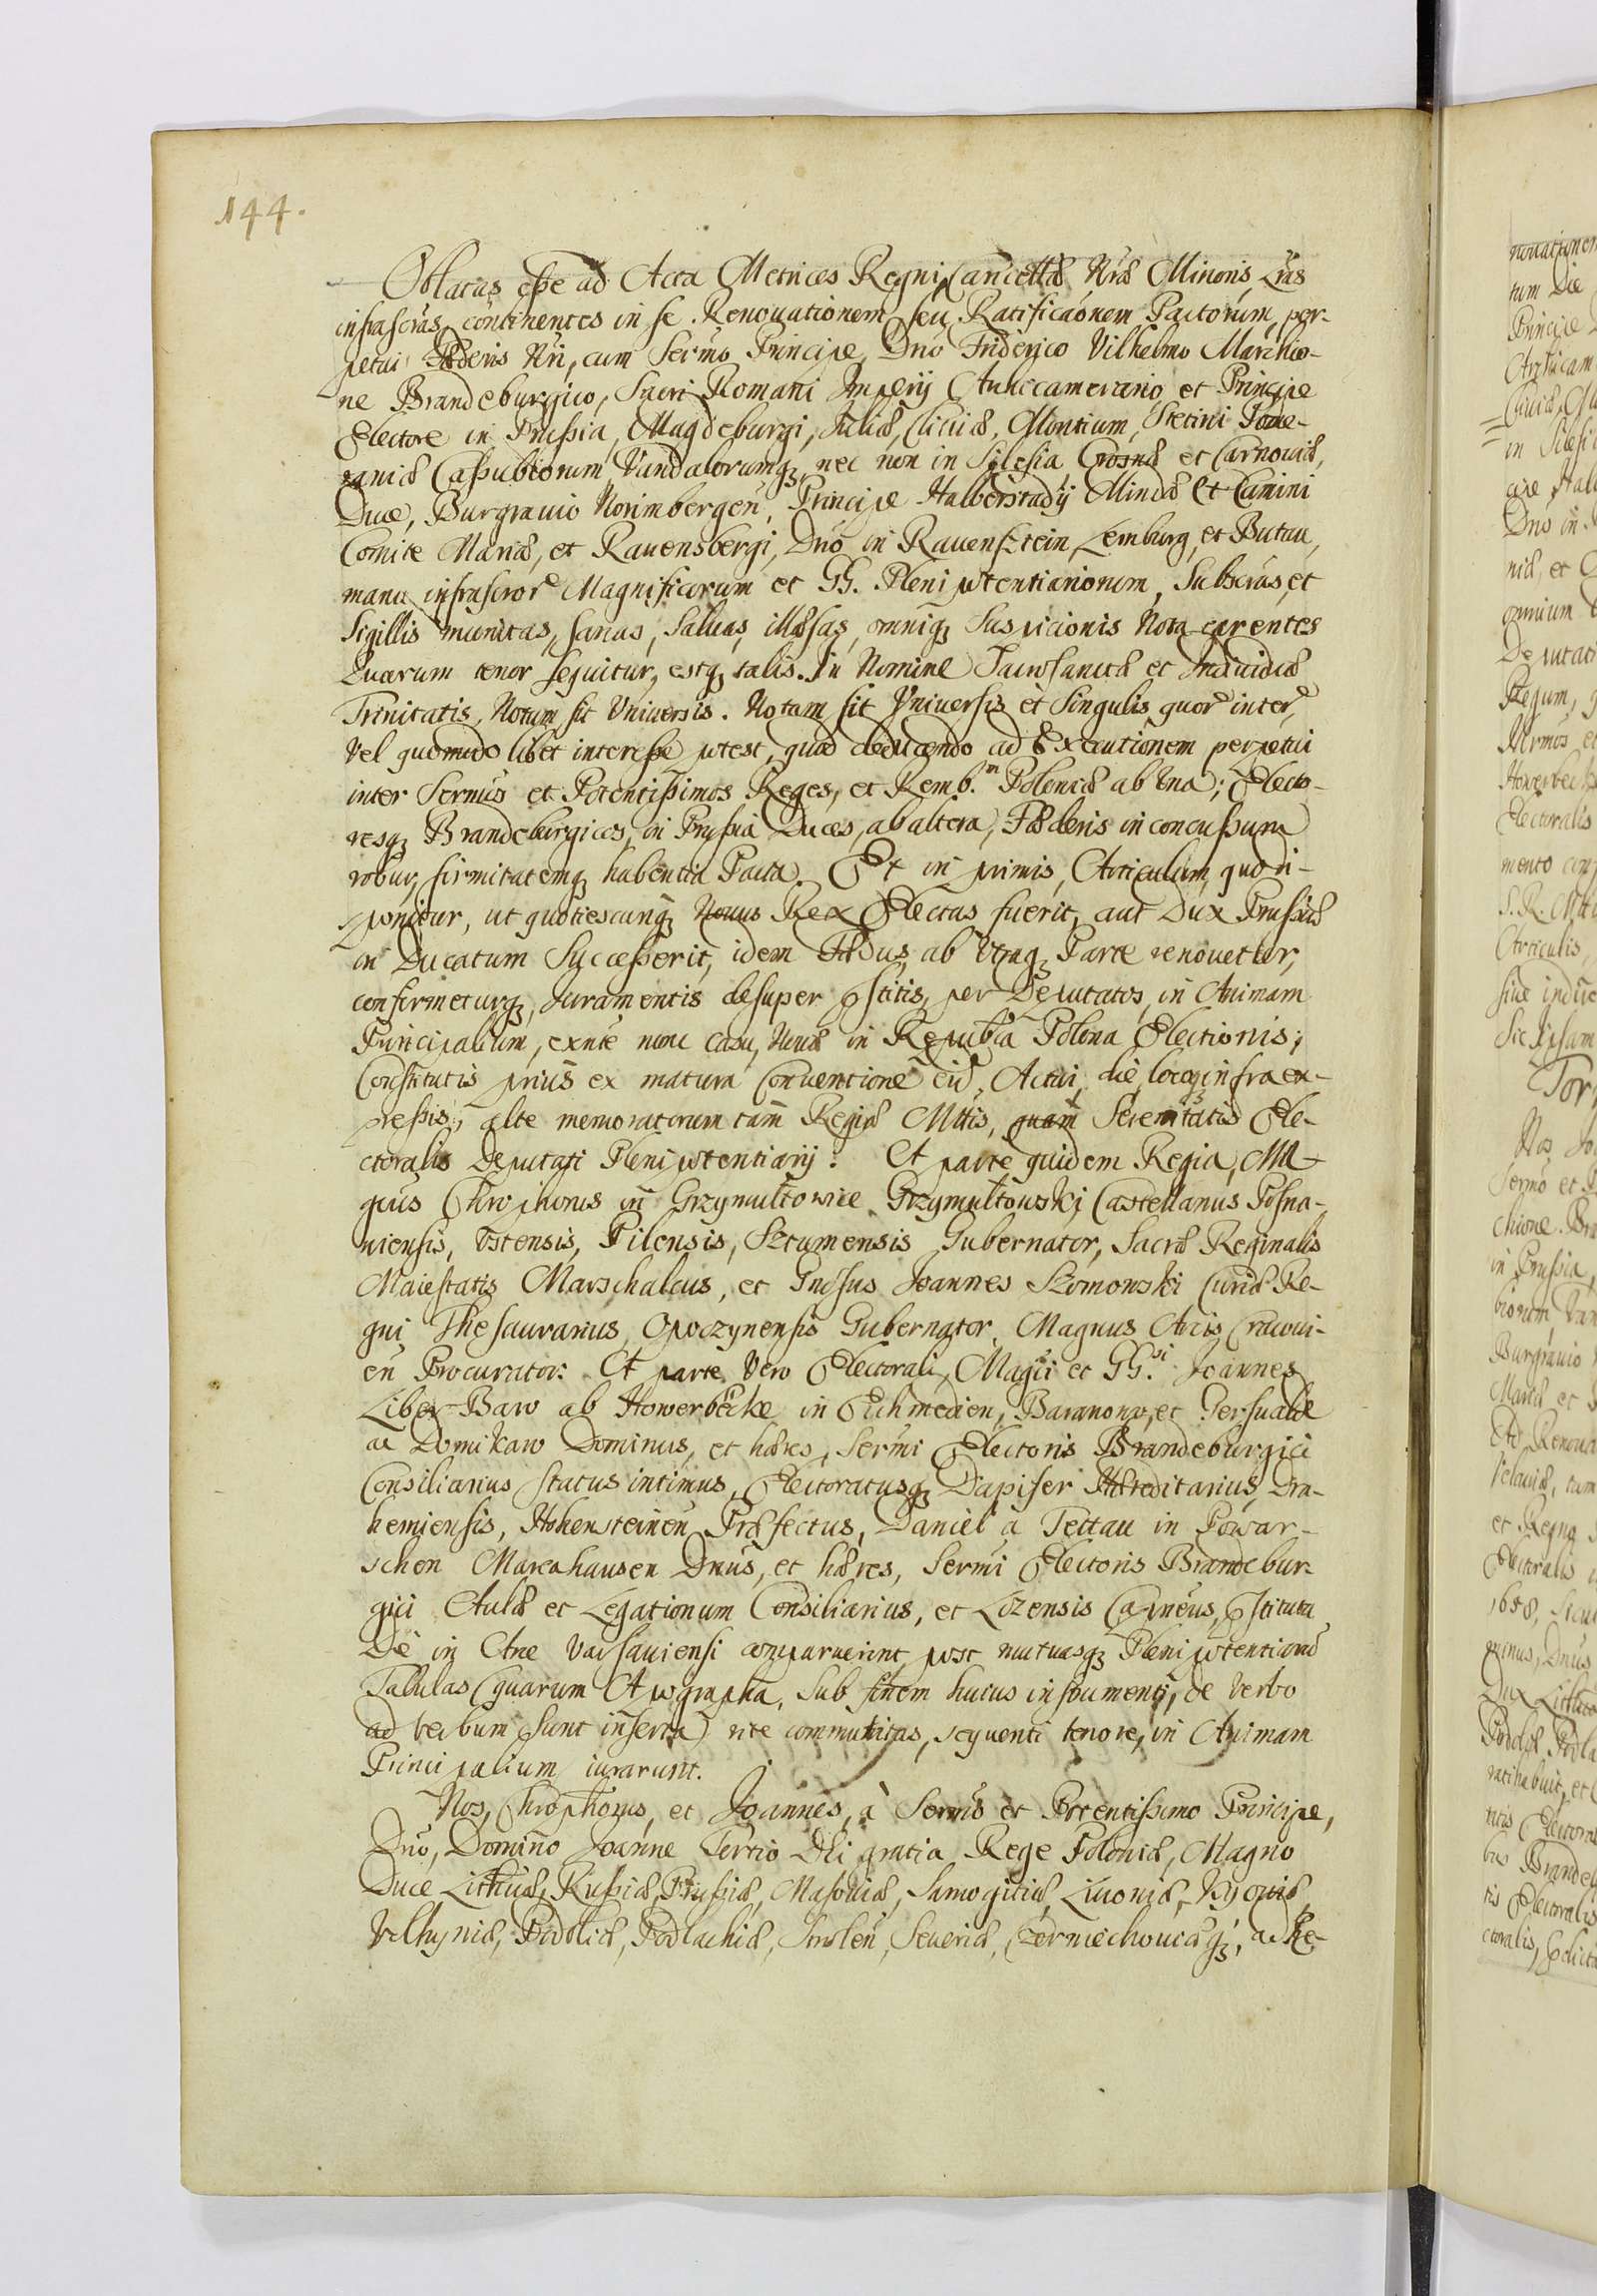 144.
Oblatas esse ad Acta Metrices Regni Cancellæ Nræ Minoris Lras
infrascras, continentes in se Renouationem seu Ratificãonem Pactorum, per-
petui Fæderis Nri, cum Sermo Principe, Dno Friderico Vilhelmo Marchio-
ne Brandeburgico, Sacri Romani Imperij Archicamerario et Principe
Electore in Prussia, Magdeburgi, Juliæ, Cliuiæ, Montium, Stetini Pome-
raniæ Cassubiorum Vandalorumq, nec non in Silesia Crosnæ et Carnouiæ,
Duce, Burgrauio Norimbergen, Principe Halberstadij Mindæ et Camini
Comite Marciæ, et Rauensbergi, Dno in Rauensztein, Lemburg, et Butau,
manu infrascror Magnificorum et GG. Plenipotentiariorum, Subscras, et
Sigillis munitas, sanas, saluas, illæsas, omniq Suspicionis Nota carentes
Quarum tenor sequitur, estq talis. In Nomine Sacrosanctæ et Indiuiduæ
Trinitatis, Notum sit Vniuersis. Notum sit Vniuersis et Singulis quor inter,
Vel quomodo libet interesse potest, quod deducendo ad Executionem perpetui
inter Sermos et Potentissimos Reges, et Remb.m Poloniæ ab Vna; Electo-
resq Brandeburgicos, in Prussia Duces, ab altera, Fæderis inconcussum
robur, firmitatemq habentia Pacta. Et in primis, Articulum, quo di-
sponitur, ut quotiescunq Nouus Rex Electus fuerit, aut Dux Prussiæ
in Ducatum Successerit, idem Fædus, ab Vtraq Parte renouetur,
confirmeturq, Juramentis desuper pstitis, per Deputatos, in Animam
Principalium, exnte nunc casu, Nouæ in Republica Polona Electionis;
Constitutis prius ex matura Conuentione eid, Actui, die, locoq infra ex-
pressis, alte memoratorum tam Regiæ Mttis, quam Serenitatis Ele-
ctoralis Deputati Plenipotentiarij: Et parte quidem Regia, Ma-
gcus Chrophorus in Grzymultowice Grzymultowski, Castellanus Posna-
niensis, Vstensis, Pilensis, Sztumensis Gubernator, Sacræ Reginalis
Maiestatis Marschalcus, et Gnosus Joannes Szomowski Curiæ Re-
gni Thesaurarius, Opoczynensis Gubernator, Magnus Arcis Cracoui-
en Procurator: Et parte Vero Electorali, Magci et GG.si Joannes
Liber Baro ab Howerbecke in Eichmedien, Baranowo, et Gersualde
ac Domikaw Dominus, et hæres, Sermi Electoris Brandeburgici
Consiliarius status intimus, Electoratusq Dapifer Hæreditarius, Dra-
hemiensis, Hohensteinen Præfectus, Daniel a Tettau in Powar-
schen Marcahausen Dnus, et hæres, Sermi Electoris Brandebur-
gici Aulæ et Legationum Consiliarius, et Lozensis Capneus, pstituta
Die in Arce Varsauiensi comparuerint, post mutuasq Plenipotentiaræ
Tabulas (quarum Apographa, Sub finem huius instrumenti, de Verbo
ad Verbum sunt inserta) rite commutatas, sequenti tenore, in Animam
Principalium iurarunt.
Nos, Chrophorus, et Joannes, à Sermo et Potentissimo Principe,
Dno, Domino Joanne Tertio Dei gratia Rege Poloniæ, Magno
Duce Lithuæ, Russiæ, Prussiæ, Masouiæ, Samogitiæ, Liuoniæ, Kyouiæ,
Volhyniæ, Podoliæ, Podlachiæ, Smolen, Seueriæ, Czerniechouiæq, ac Re-